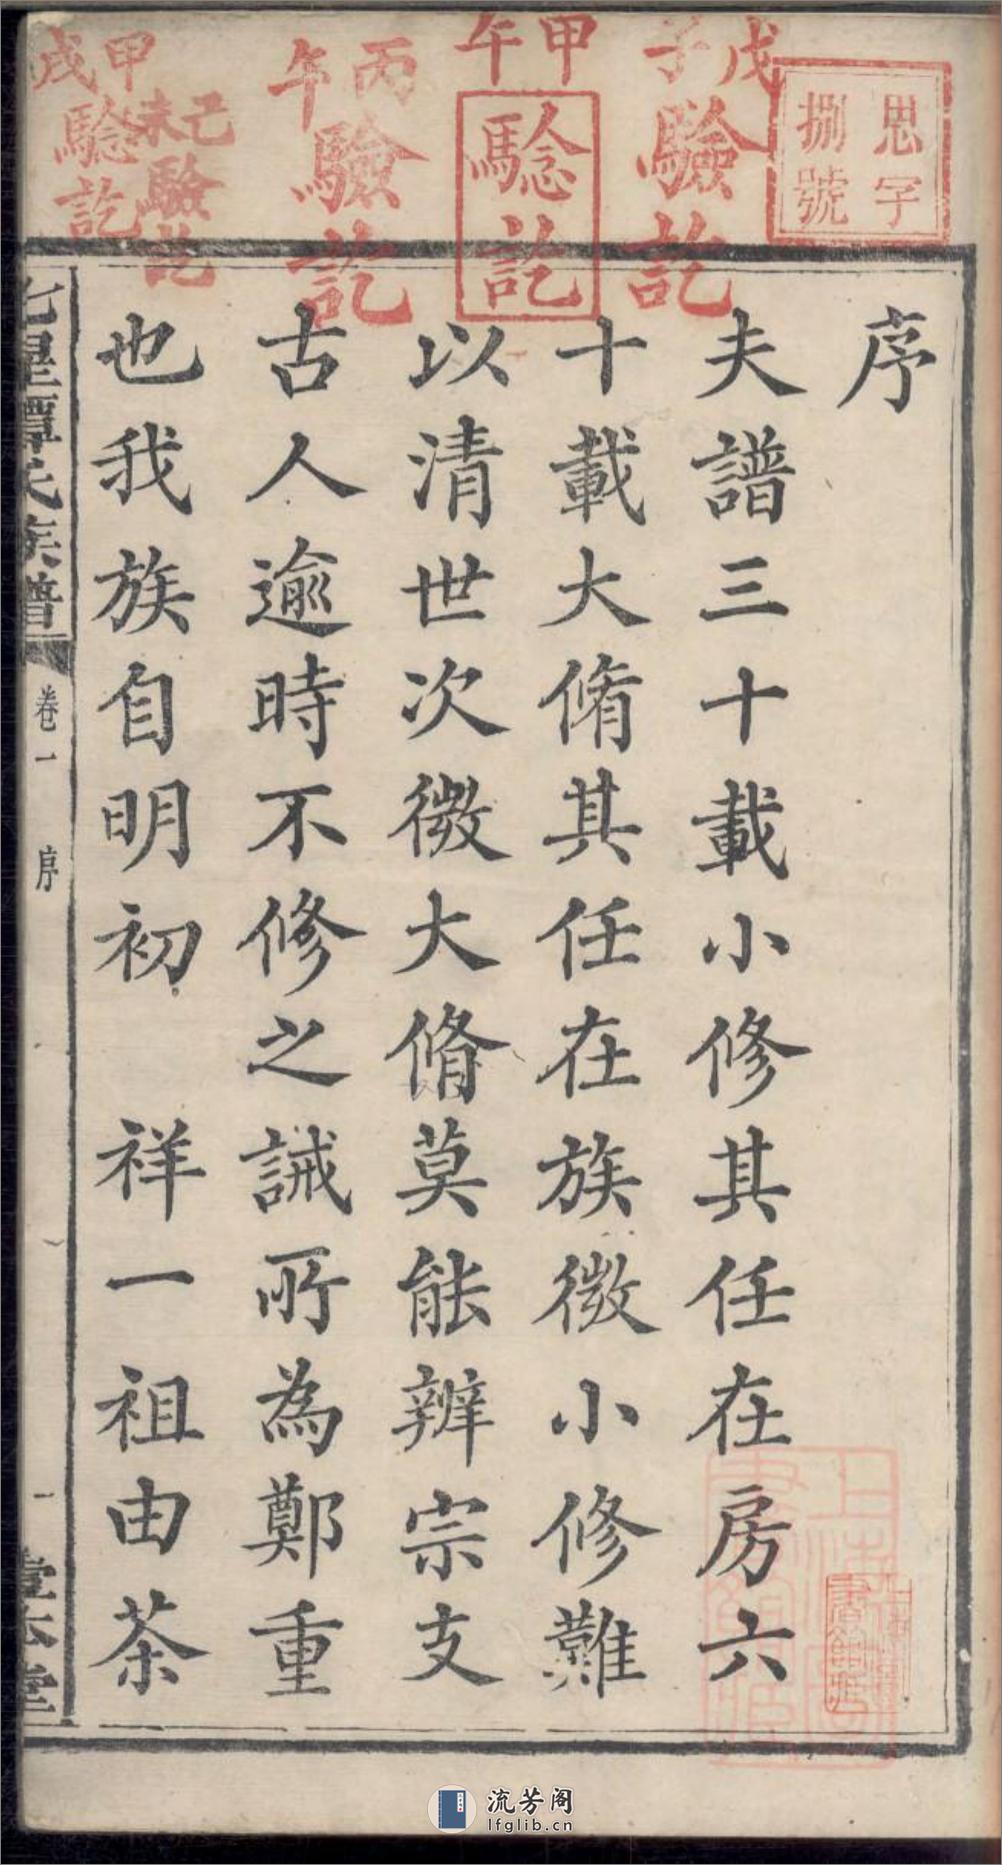 思字
捌號
戊子
驗訖
甲午
騐訖
丙午
驗訖
己未
驗訖
甲戌
騐訖
序
夫譜三十載小修其任在房六
十載大脩其任在族微小修難
以清世次微大脩莫能辨宗支
古人逾時不修之誡所為鄭重
也我族自明初 祥一祖由茶
七星譚氏族譜 卷一 序 一
流芳阁
lfglib.cn